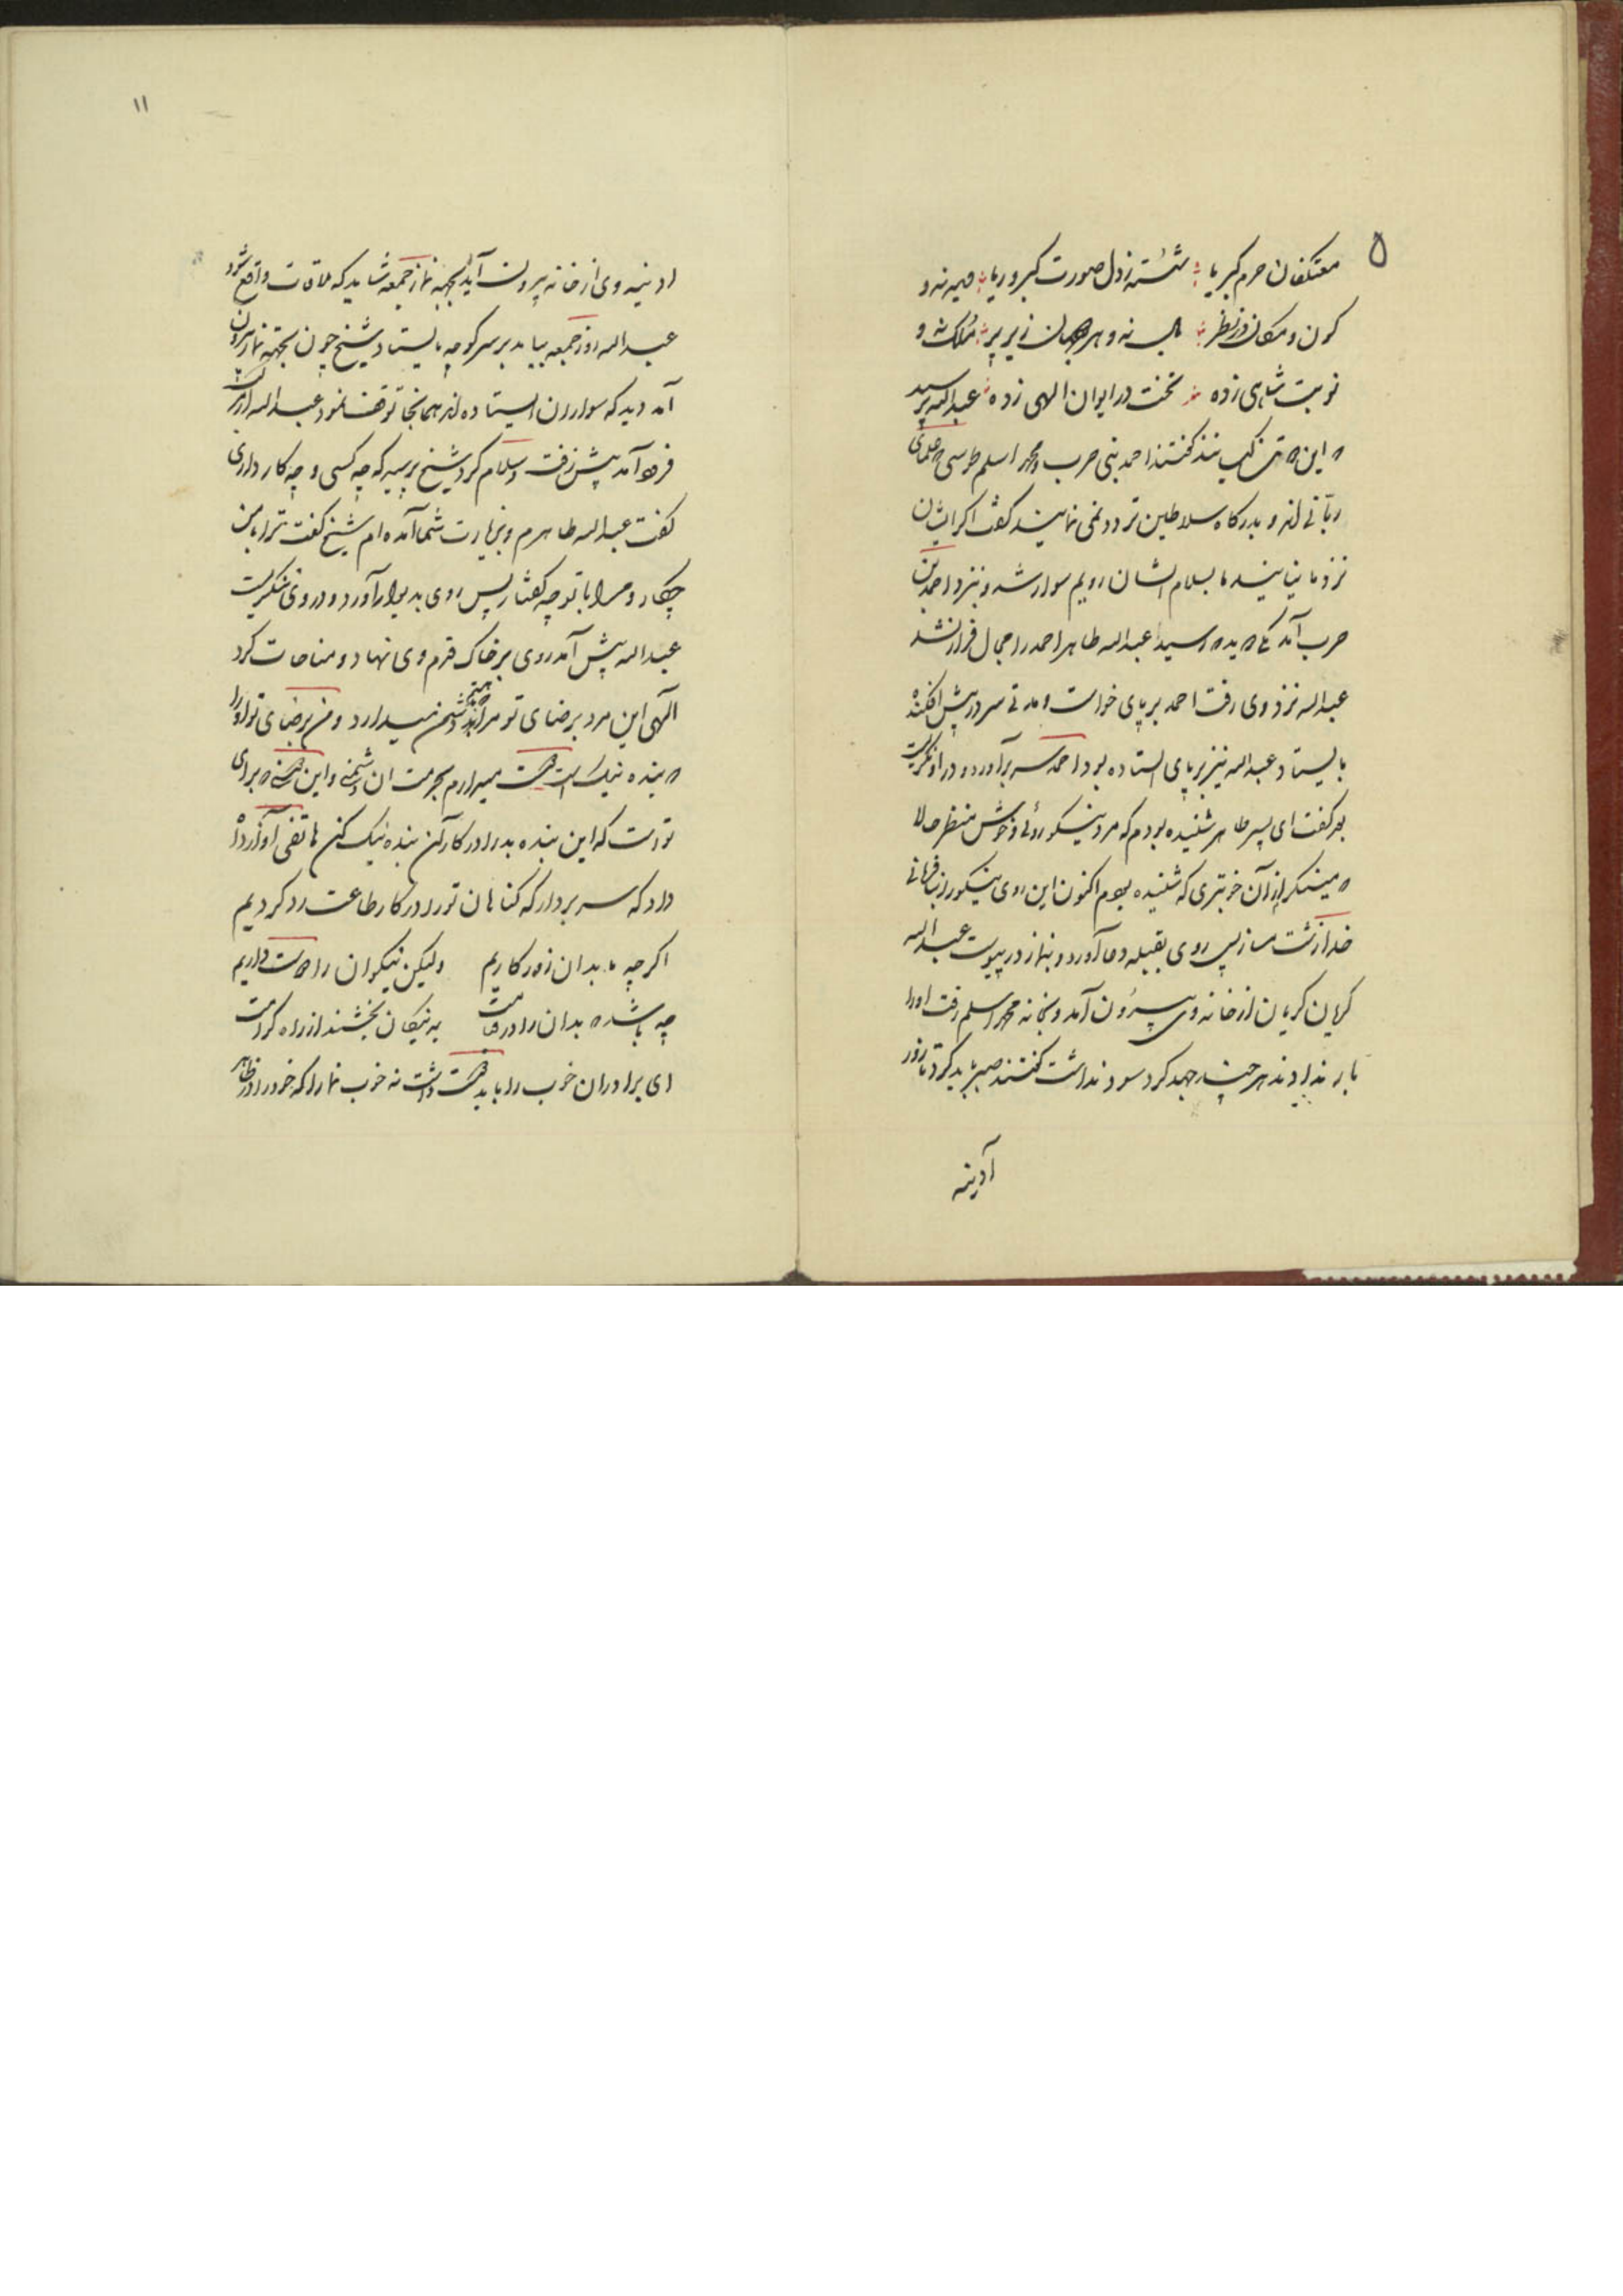 ۵
معتکفان حرم کبریا شسته ز دل صورت کبر و ریا دیده نه و
کون و مکان در نظر بال نه و هر دو جهان زیر پر ملک نه و
نوبت شاهی زده تخت در ایوان الهی زده عبدالله پرسید
این دو تن کیستند گفتند احمد بنی حرب و محمد اسلم طوسی علمای
ربّانی اند و بدرگاه سلاطین تردد نمی نمایند گفت اگر ایشان
نزد ما نیایند ما بسلام ایشان رویم سوار شد و نزد احمد بن
حرب آمد یکی دوید رسید عبدالله طاهر احمد را مجال فرار نشد
عبدالله نزد وی رفت احمد بر پای خواست و مدتی سر در پیش افکنده
بایستاد عبدالله نیز بر پای ایستاده بود احمد سر برآورد و در او نگریست
گفت ای پسر طاهر شنیده بودم که مرد نیکو روئی و خوش منظر حالا
مینگرم از آن خوبتری که شنیده بودم اکنون این روی نیکو را بنافرمانی
خدا زشت مساز پس روی بقبله دعا آورد و بنماز در پیوست عبدالله
گریان گریان از خانه وی بیرون آمد و بخانه محمد اسلم رفت او را
بار ندادند هر چند جهد کرد سود نداشت گفتند صبر باید کرد تا روز
آدینه
۱۱
ادینه وی از خانه بیرون آید بجهة نماز جمعه شاید که ملاقات واقع شود
عبدالله روز جمعه بیامد بر سر کوچه بایستاد شیخ چون بجهة نماز بیرون
آمد دید که سواران ایستاده اند همانجا توقف نمود عبدالله از اسب
فرود آمد پیش رفت و سلام کرد شیخ پرسید که چه کسی و چه کار داری
گفت عبدالله طاهرم و بزیارت شما آمده ام شیخ گفت ترا با من
چکار و مرا با تو چه گفتار پس روی بدیوار آورد و در وی ننگریست
عبدالله پیش آمد روی بر خاک قدم وی نهاد و مناجات کرد
الهی این مرد برضای تو مرا دشمن میدارد و من برضای تو او را
بنده نیک است دوست میدارم بحرمت ان دشمنی و این دوستی برای
تو است که این بنده بد را در کار آن بنده نیک کن هاتفی آواز داد
که سر بردار که گناهان تو را در کار طاعت رد کردیم
اگر چه ما بدان زور کاریم ولیکن نیکوان را دوست داریم
چه باشد بدان را در قیامت به نیکان بخشند از راه کرامت
ای برادران خوب را باید دوست داشت نه خوب نما را که خود را در ظاهر